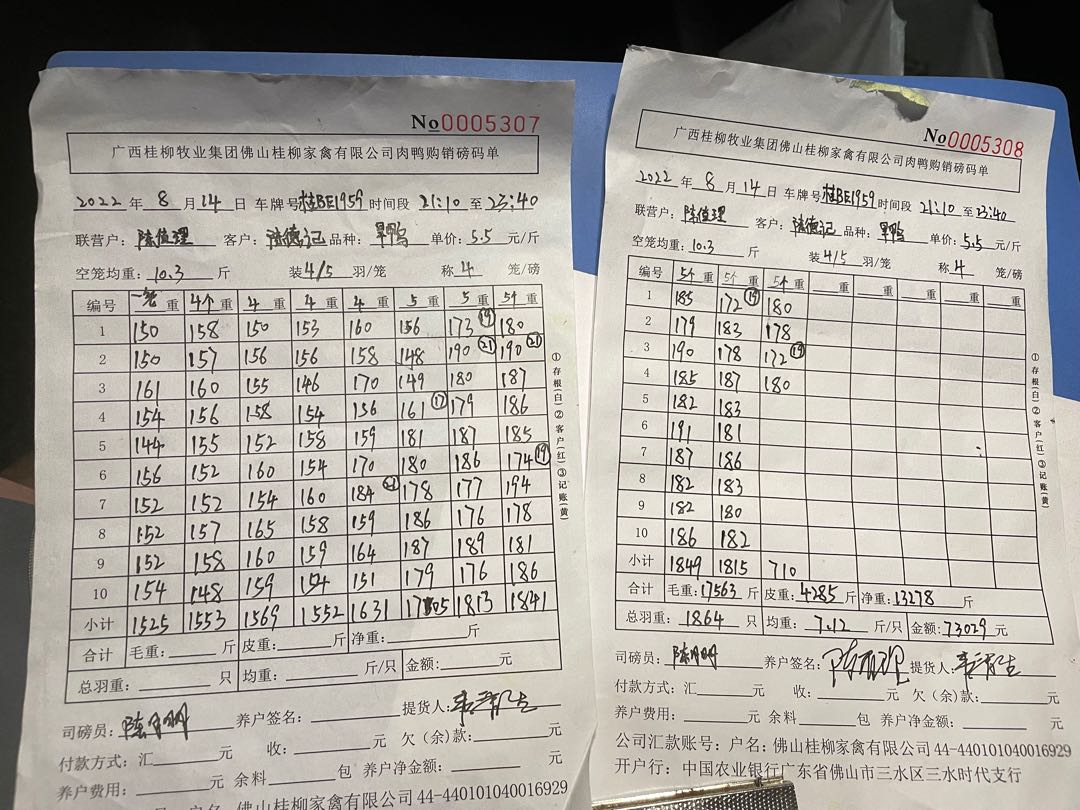 No0005307
广西桂柳牧业集团佛山桂柳家禽有限公司肉鸭购销磅码单
2022 年 8 月 14 日 车牌号 桂BE1959 时间段 21:10 至 23:40
联营户: 客户: 陆德记 品种: 旱鸭 单价: 5.5 元/斤
空笼均重: 10.3 斤 装 4/5 羽/笼 称 4 笼/磅
编号 重 4个重 4重 4重 4重 5重 5重 5个重
1 150 158 150 153 160 156 173⑲ 180
2 150 157 156 156 158 148 190㉑ 190㉑
3 161 160 155 146 170 149 180 187
4 154 156 158 154 156 161⑰ 179 186
5 144 155 152 158 159 181 187 185
6 156 152 160 154 170 180 186 174⑲
7 152 152 154 160 184㉑ 178 177 194
8 152 157 165 158 159 186 176 178
9 152 158 160 159 164 187 189 181
10 154 148 159 154 151 179 176 186
小计 1525 1553 1569 1552 1631 1705 1813 1841
合计 毛重: 斤 皮重: 斤 净重: 斤
总羽重: 只 均重: 斤/只 金额: 元
司磅员: 养户签名: 提货人:
付款方式: 汇 元 收: 元 欠(余)款: 元
养户费用: 元 余料 包 养户净金额: 元
户名: 佛山桂柳家禽有限公司 44-440101040016929
①存根(白)②客户(红)③记账(黄)
No0005308
广西桂柳牧业集团佛山桂柳家禽有限公司肉鸭购销磅码单
2022 年 8 月 14 日 车牌号 桂BE1959 时间段 21:10 至 23:40
联营户: 客户: 陆德记 品种: 旱鸭 单价: 5.5 元/斤
空笼均重: 10.3 斤 装 4/5 羽/笼 称 4 笼/磅
编号 5个重 5个重 5个重 重 重 重 重 重
1 185 172⑲ 180
2 179 183 178
3 190 178 172⑲
4 185 187 180
5 182 183
6 191 181
7 187 186
8 182 183
9 182 180
10 186 182
小计 1849 1815 710
合计 毛重: 17563 斤 皮重: 4285 斤 净重: 13278 斤
总羽重: 1864 只 均重: 7.12 斤/只 金额: 73029 元
司磅员: 养户签名: 提货人:
付款方式: 汇 元 收: 元 欠(余)款: 元
养户费用: 元 余料 包 养户净金额: 元
公司汇款账号: 户名: 佛山桂柳家禽有限公司 44-440101040016929
开户行: 中国农业银行广东省佛山市三水区三水时代支行
①存根(白)②客户(红)③记账(黄)